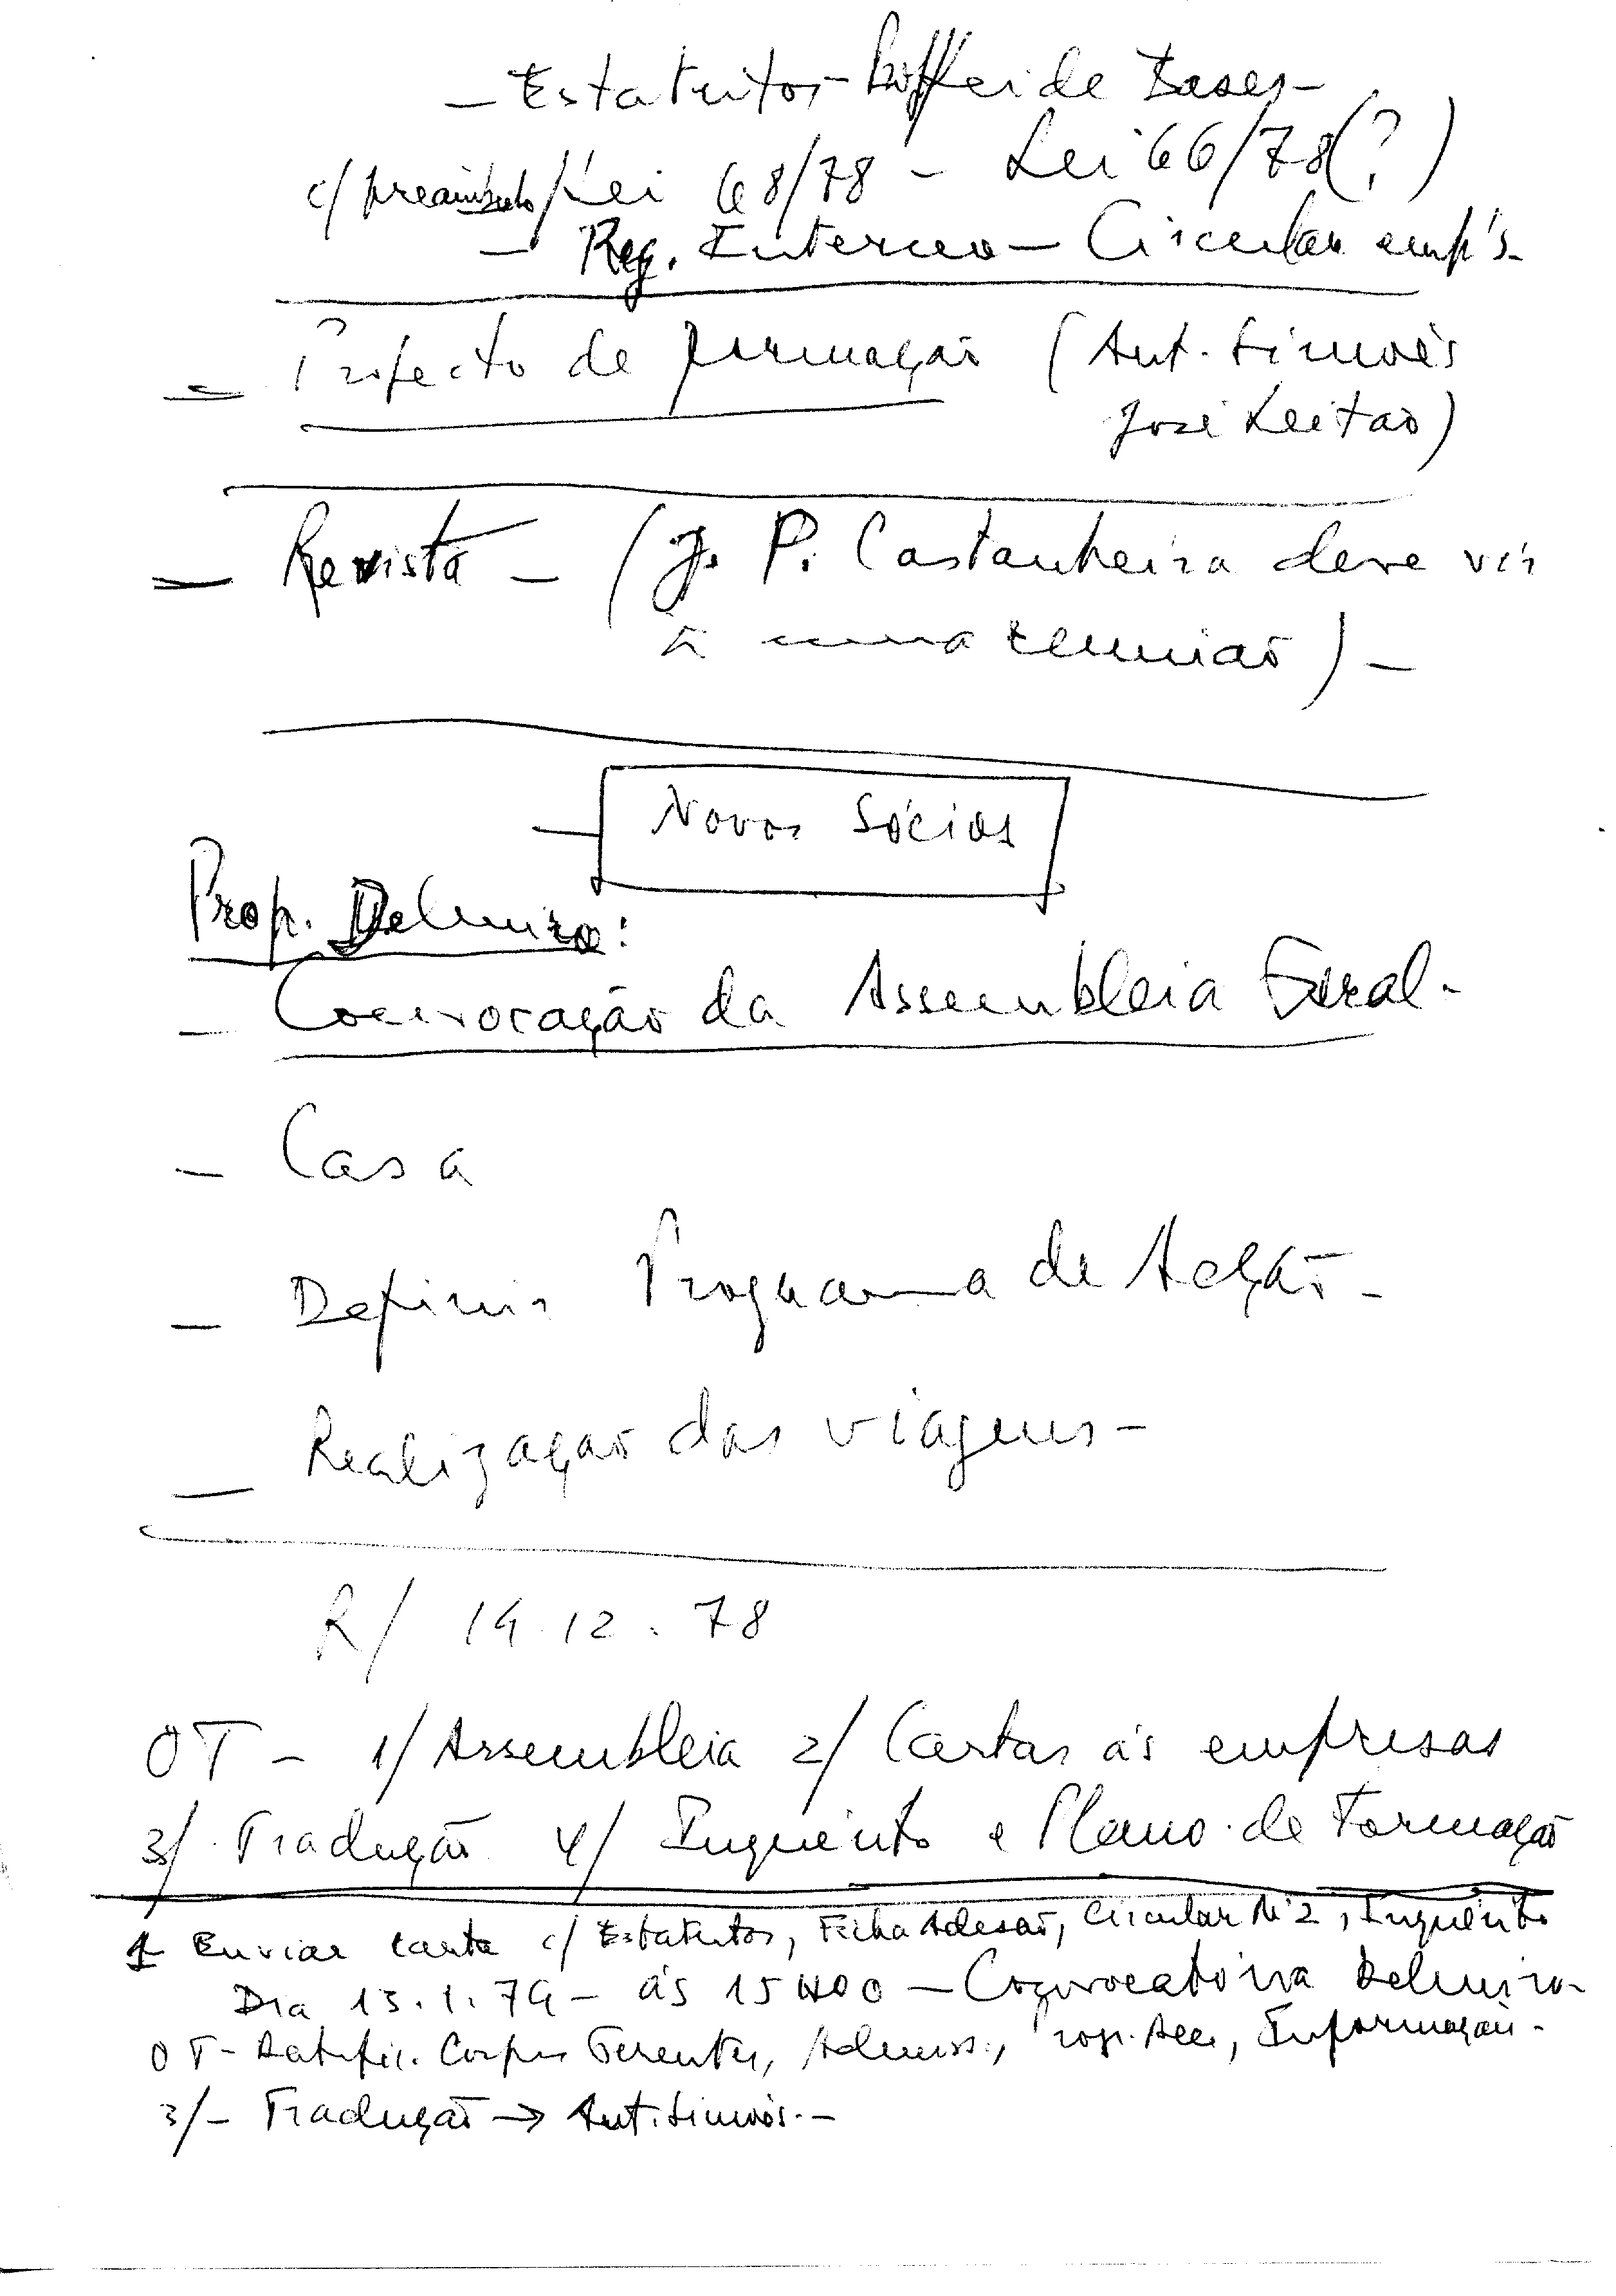 - Estatutos - de Bases -
c/ preâmbulo / Lei 68/78 - Lei 66/78 (?)
- Reg. Interno - Circular emp's -
- Projecto de formação (Ant. Simões
José Leitão)
- Revista - (J. P. Castanheira deve vir
a uma reunião) -
- Novos Sócios
Prop. Delmiro:
- Convocação da Assembleia Geral -
- Casa
- Definir Programa de Acção -
- Realização das viagens -
R/ 14.12.78
OT - 1/ Assembleia 2/ Cartas às empresas
3/ Tradução 4/ Inquérito e Plano de Formação
1 Enviar carta c/ Estatutos, Ficha Adesão, Circular Nº 2, Inquérito
Dia 13.1.79 - às 15H00 - Convocatória Delmiro -
OT - Ratific. Corpos Gerentes, Admiss., Informação -
3/ - Tradução → Ant. Simões. -